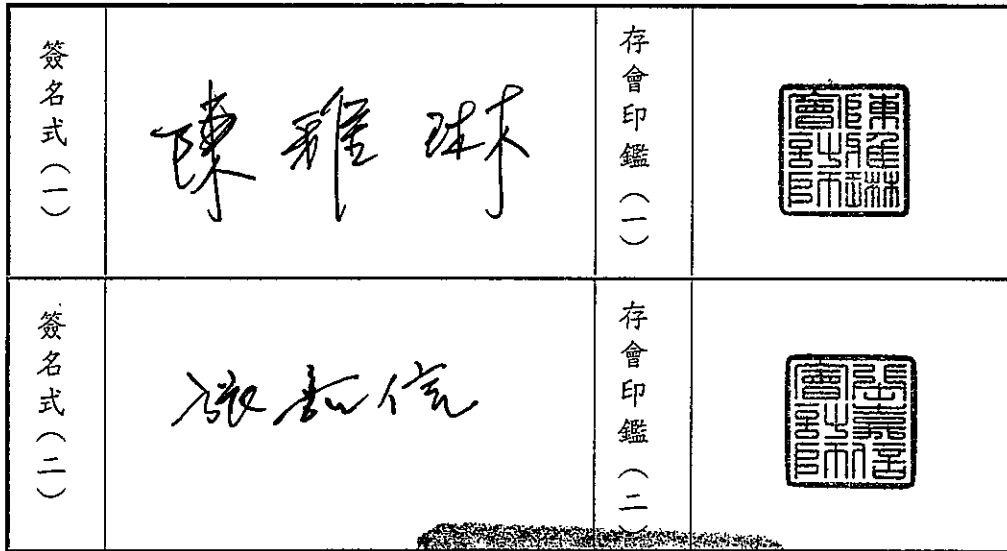 簽名式(一)
陳雅琳
存會印鑑(一)
陳雅琳會計師
簽名式(二)
張嘉信
存會印鑑(二)
張嘉信會計師